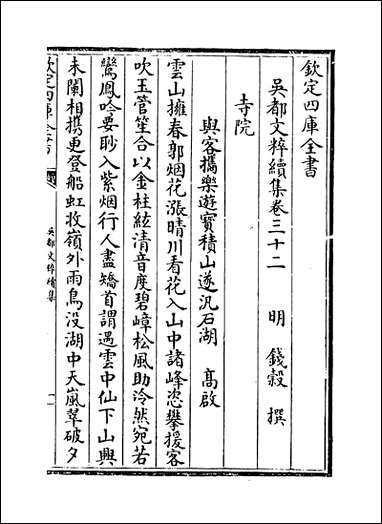 欽定四庫全書
吳都文粹續集卷三十二
明 錢穀 撰
寺院
與客攜樂遊寶積山遂汎石湖 高啟
雲山擁春郭烟花漲晴川看花入山中諸峰恣攀援客
吹玉管笙合以金柱絃清音度碧嶂松風助泠然宛若
鸞鳳吟要眇入紫烟行人盡矯首謂遇雲中仙下山興
未闌相携更登船虹收嶺外雨鳥没湖中天嵐翠破夕
欽定四庫全書
吳都文粹續集
一